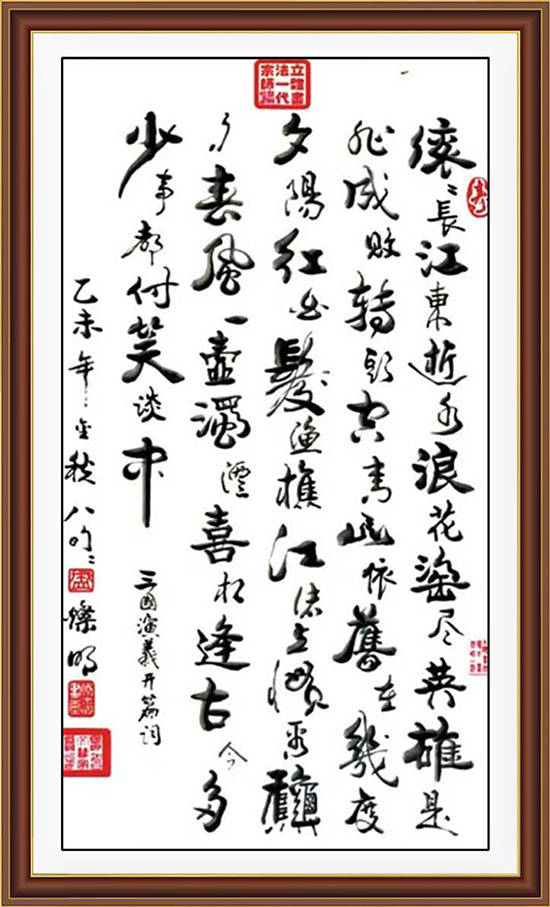 立體書
法一代
宗師
滚〻長江東逝水浪花淘尽英雄是
非成敗转頭空青山依舊在幾度
夕陽红白髮渔樵江渚上慣看龝
月春風一壺濁酒喜相逢古今多
少事都付笑谈中
三國演義开篇詞
乙未年金秋八 燦明